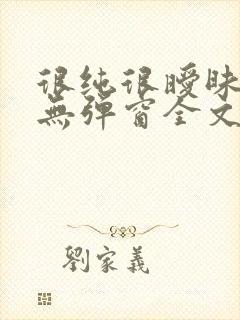 很纯很暧昧
無弹窗全文
劉家義